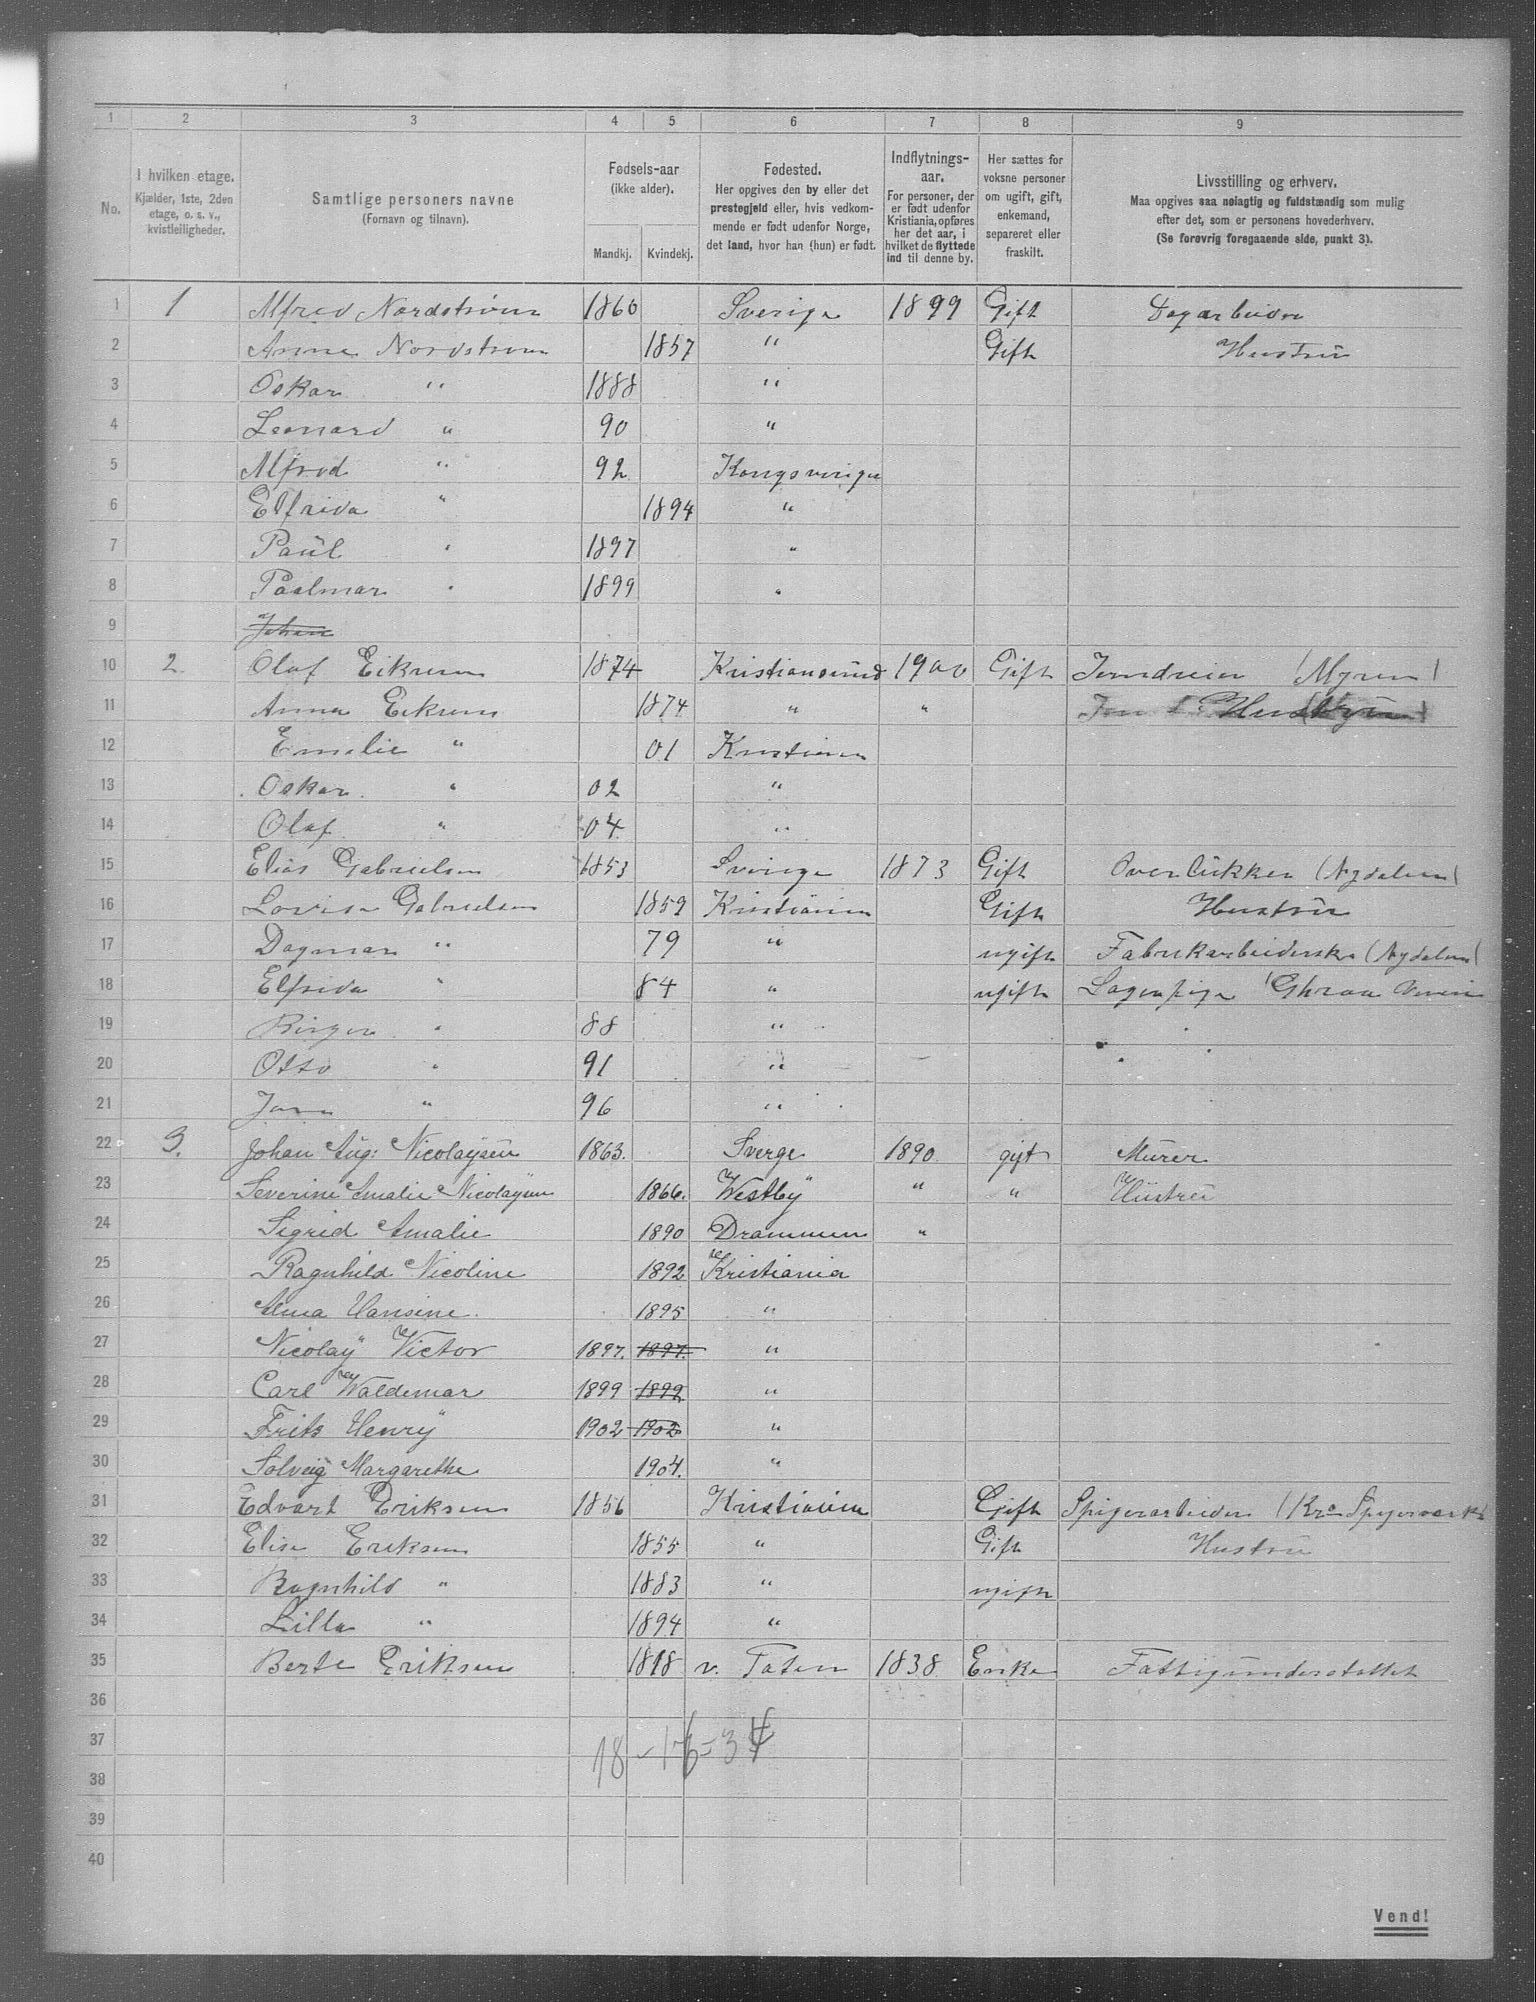 1 2 3 4 5 6 7 8 9
No.
I hvilken etage.
Kjælder, 1ste, 2den
etage, o. s. v.,
kvistleiligheder.
Samtlige personers navne
(Fornavn og tilnavn).
Fødsels-aar
(ikke alder).
Mandkj. Kvindekj.
Fødested.
Her opgives den by eller det
prestegjeld eller, hvis vedkom-
mende er født udenfor Norge,
det land, hvor han (hun) er født.
Indflytnings-
aar.
For personer, der
er født udenfor
Kristiania, opføres
her det aar, i
hvilket de flyttede
ind til denne by.
Her sættes for
voksne personer
om ugift, gift,
enkemand,
separeret eller
fraskilt.
Livsstilling og erhverv.
Maa opgives saa nøiagtig og fuldstændig som mulig
efter det, som er personens hovederhverv.
(Se forøvrig foregaaende side, punkt 3).
1 1 Alfred Nordstrøm 1860 Sverige 1899 Gift Dagarbeider
2 Anna Nordstrøm 1857 " Gift Hustru
3 Oskar " 1888 "
4 Leonard " 90 "
5 Alfred " 92 Kongsvinger
6 Elfrida " 1894 "
7 Paul " 1897 "
8 Paalmar " 1899 "
9 Johan
10 2. Olaf Eikrem 1874 Kristiansund 1900 Gift Jerndreier (Myren)
11 Anna Eikrem 1874 " " Hustru
12 Emelie " 01 Kristiania
13 Oskar " 02 "
14 Olaf " 04 "
15 Elias Gabrielsen 1853 Sverige 1873 Gift Overlikker (Nydalen)
16 Lovise Gabrielsen 1859 Kristiania Gift Hustru
17 Dagmar " 79 " ugift Fabrikarbeiderske (Nydalen)
18 Elfrida " 84 " ugift
19 Birger " 88 "
20 Otto " 91 "
21 " 96 "
22 3. Johan Aug: Nicolaysen 1863. Sverge 1890 gift Murer
23 Severine Amalie Nicolaysen 1866. Westby " " Hustru
24 Sigrid Amalie 1890 Drammen "
25 Ragnhild Nicoline 1892 Kristiania
26 Alma Hansine 1895 "
27 Nicolay Victor 1897. 1897. "
28 Carl Waldemar 1899 1899 "
29 Frits Henry 1902 1902 "
30 Solveig Margarethe 1904. "
31 Edvart Eriksen 1856 Kristiania Gift Spigerarbeider (Kra Spigerværk)
32 Elise Eriksen 1855 " Gift Hustru
33 Ragnhild " 1883 " ugift
34 Lilla " 1894 "
35 Berte Eriksen 1818 v. Toten 1838 Enke Fattigunderstøttet
36
37 18 - 16 = 34
38
39
40
Vend!